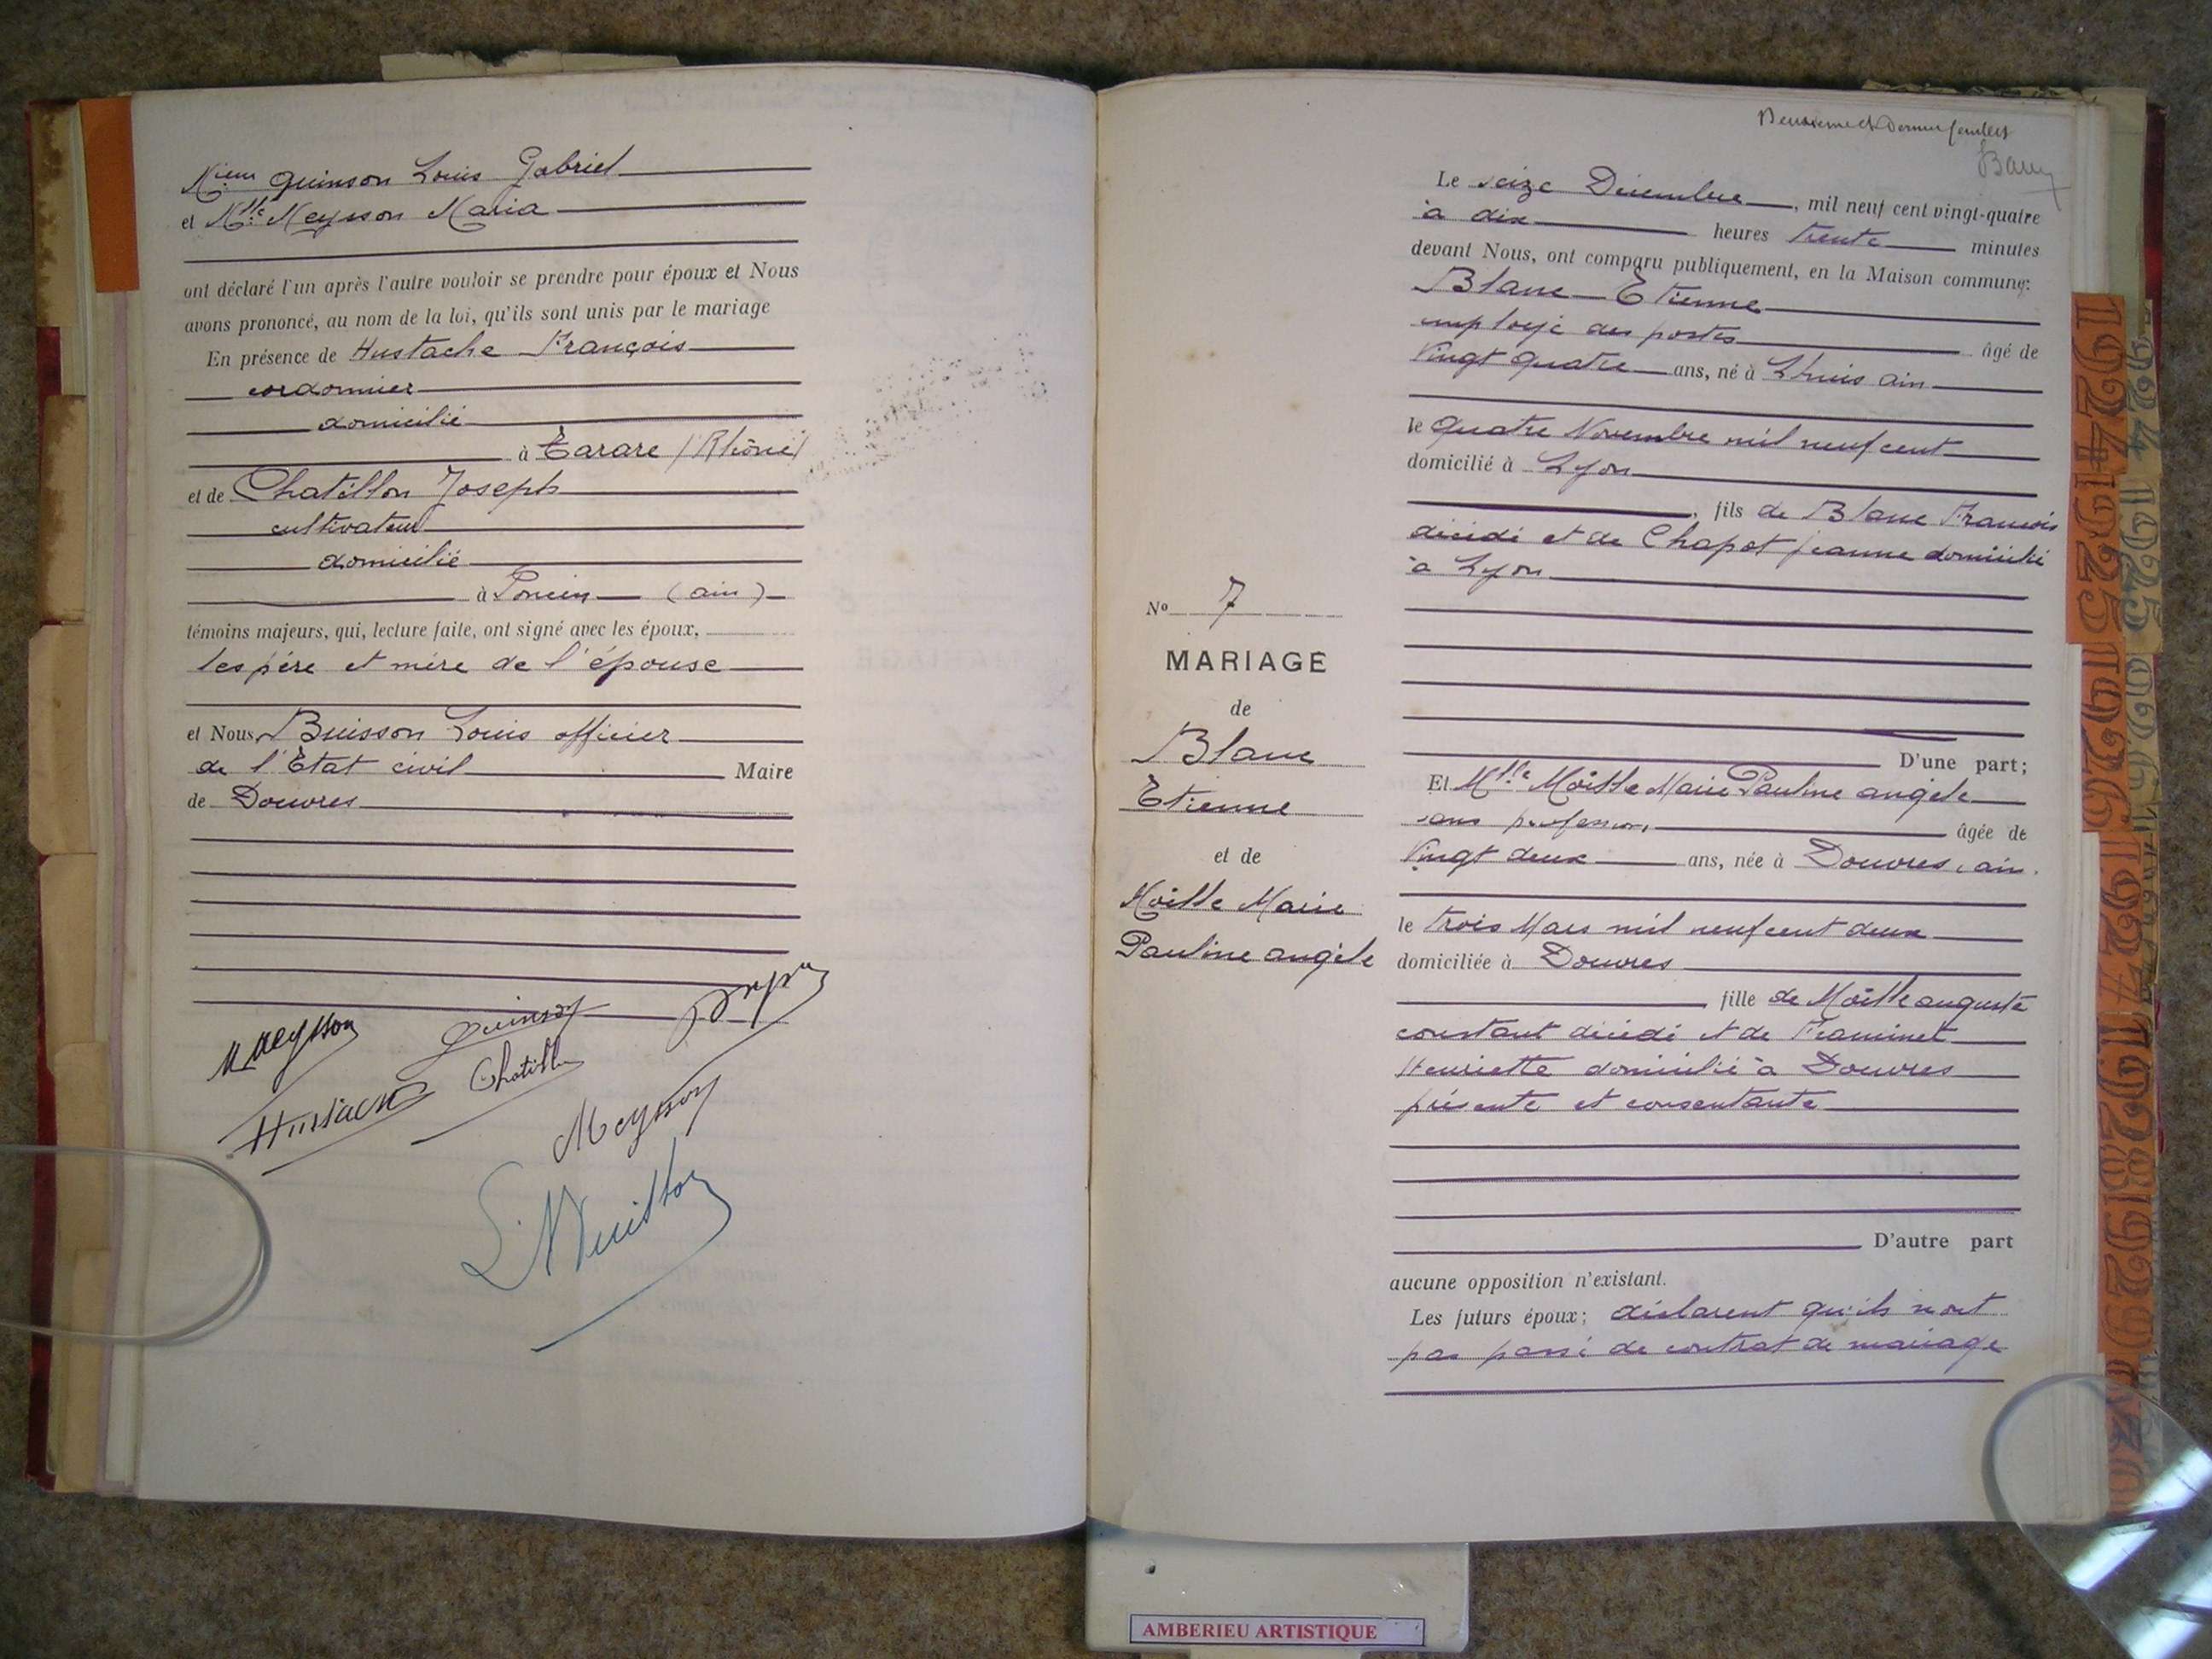 Mieur Quinson Louis Gabriel
et Mlle Meysson Maria
ont déclaré l'un après l'autre vouloir se prendre pour époux et Nous
avons prononcé, au nom de la loi, qu'ils sont unis par le mariage
En présence de Hustache François
cordonnier
domicilié
à Tarare (Rhône)
et de Chatillon Joseph
cultivateur
domicilié
à Poncin (ain)
témoins majeurs, qui, lecture faite, ont signé avec les époux,
les père et mère de l'épouse
et Nous, Buisson Louis officier
de l'Etat civil Maire
de Douvres
M Meysson
Quinson
Hustache
Chatillon
Meysson
Deuxième et Dernier feuillet
Le seize Décembre, mil neuf cent vingt-quatre
à dix heures trente minutes
devant Nous, ont comparu publiquement, en la Maison commune:
Blanc Etienne
employé des postes âgé de
Vingt quatre ans, né à Lhuis ain
le Quatre Novembre mil neuf cent
domicilié à Lyon
, fils de Blanc Francois
décédé et de Chapot jeanne domicilié
à Lyon
No 7
MARIAGE
de
Blanc
Etienne
et de
Moitte Marie
Pauline angèle
D'une part;
Et Mlle Moitte Marie Pauline angèle
sans profession, âgée de
Vingt deux ans, née à Douvres, ain.
le trois Mars mil neuf cent deux
domiciliée à Douvres
fille de Moitte auguste
constant décédé et de
Henriette domicilié à Douvres
présente et consentante
D'autre part
aucune opposition n'existant.
Les futurs époux; déclarent qu'ils n'ont
pas passé de contrat de mariage
1924
1925
1926
1927
1928
1929
AMBERIEU ARTISTIQUE